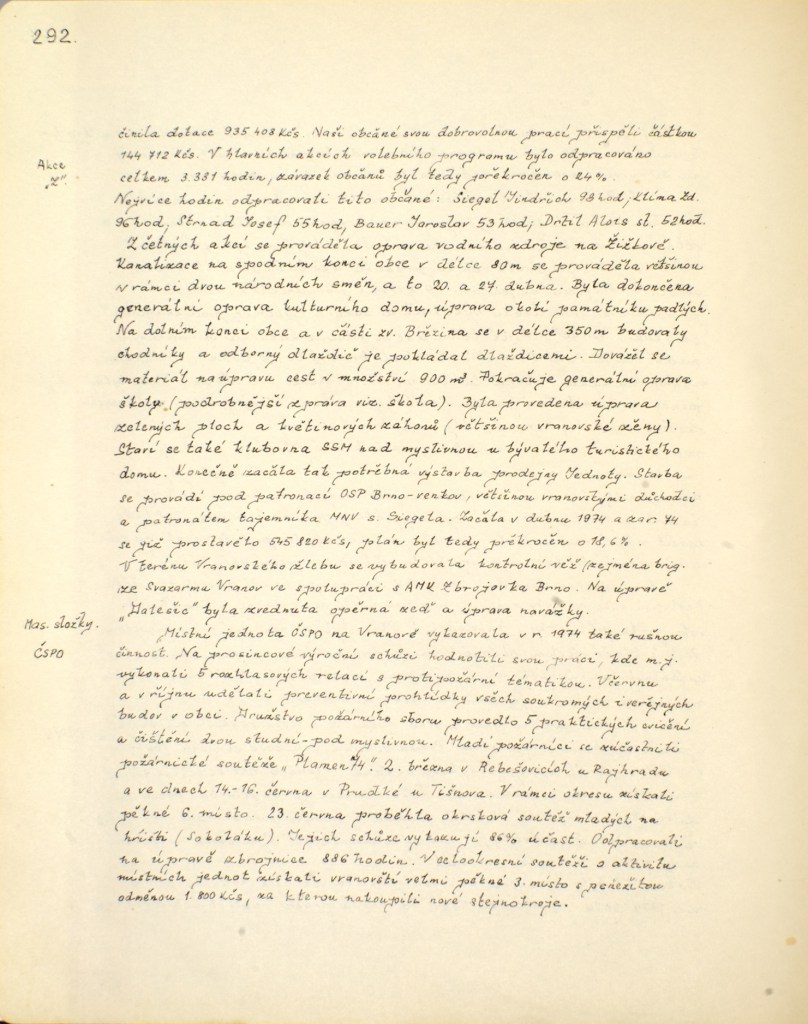 292.
činila dotace 935 408 Kčs. Naši občané svou dobrovolnou prací přispěli částkou
Akce „Z"
144 712 Kčs. V hlavních akcích volebního programu bylo odpracováno
celkem 3.331 hodin, závazek občanů byl tedy překročen o 24%.
Nejvíce hodin odpracovali tito občané: Siegel Jindřich 98 hod, Klíma Zd.
96 hod, Strnad Josef 55 hod, Bauer Jaroslav 53 hod, Držil Alois st. 52 hod.
Z četných akcí se prováděla oprava vodního zdroje na Žižkově.
Kanalizace na spodním konci obce v délce 80 m se prováděla většinou
v rámci dvou národních směn, a to 20. a 27. dubna. Byla dokončena
generální oprava kulturního domu, úprava okolí památníku padlých.
Na dolním konci obce a v části zv. Březina se v délce 350 m budovaly
chodníky a odborný dlaždič je pokládal dlaždicemi. Dovážel se
materiál na úpravu cest v množství 900 m³. Pokračuje generální oprava
školy (podrobnější zpráva viz. škola). Byla provedena úprava
zelených ploch a květinových záhonů (většinou vranovské ženy).
Staví se také klubovna SSM nad myslivnou u bývalého turistického
domu. Konečně začala tak potřebná výstavba prodejny Jednoty. Stavba
se provádí pod patronací OSP Brno-venkov, většinou vranovskými důchodci
a patronátem tajemníka MNV s. Siegela. Začala v dubnu 1974 a za r. 74
se již prostavělo 545 820 Kčs, plán byl tedy překročen o 18,6%.
V terénu Vranovského žlebu se vybudovala kontrolní věž (zejména brig.
ze Svazarmu Vranov ve spolupráci s AMK Zbrojovka Brno. Na úpravě
„Halešic" byla zvednuta opěrná zeď a úprava navážky.
Mas. složky.
ČSPO
Místní jednota ČSPO na Vranově vykazovala v r. 1974 také rušnou
činnost. Na prosincové výroční schůzi hodnotili svou práci, kde m.j.
vykonali 5 rozhlasových relací s protipožární tématikou. V červnu
a v říjnu udělali preventivní prohlídky všech soukromých i veřejných
budov v obci. Družstvo požárního sboru provedlo 5 praktických cvičení
a čištění dvou studní - pod myslivnou. Mladí požárníci se zúčastnili
požárnické soutěže „Plamen 74". 2. března v Rebešovicích u Rajhradu
a ve dnech 14.-16. června v Prudké u Tišnova. V rámci okresu získali
pěkné 6. místo. 23. června proběhla okrsková soutěž mladých na
hřišti (Sokoláku). Jejich schůze vykazují 86% účast. Odpracovali
na úpravě zbrojnice 886 hodin. V celookresní soutěži o aktivitu
místních jednot získali vranovští velmi pěkné 3. místo s peněžitou
odměnou 1.800 Kčs, za kterou nakoupili nové stejnokroje.